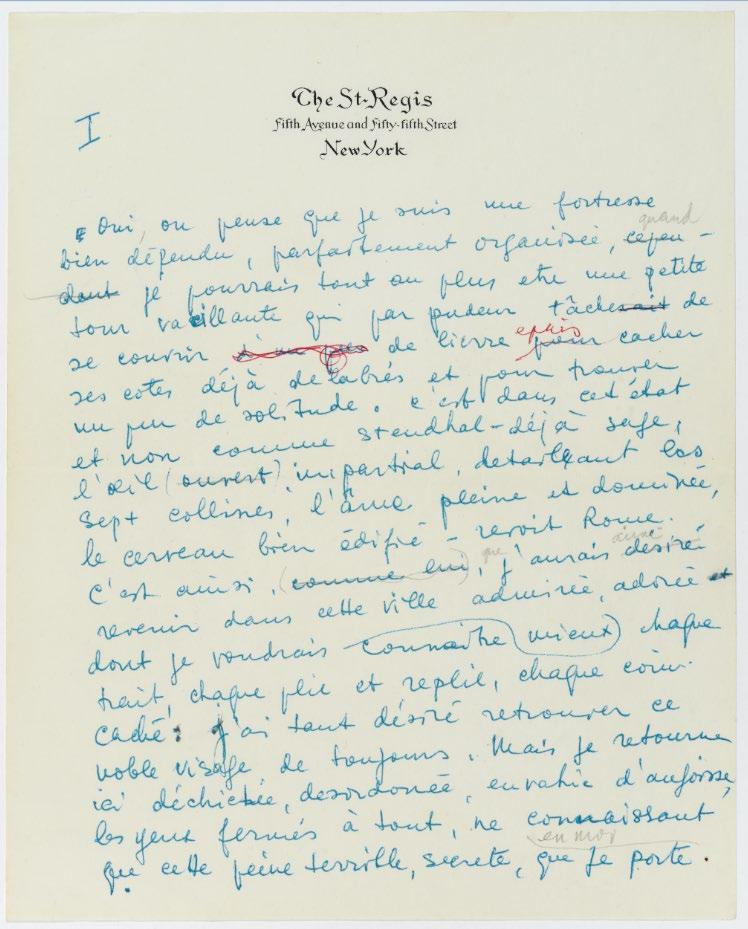 The St-Regis
Fifth Avenue and Fifty-fifth Street
New York
I
Oui, on pense que je suis une fortresse
quand
bien défendu, parfaitement organisée, cepen-
dant je pourrais tout au plus etre une petite
tour vacillante qui par pudeur tâcherait de
epais
se couvrir de lierre pour cacher
ses cotes déjà delabrés et pour trouver
un peu de solitude. c'est dans cet état
et non comme Stendhal - déjà sage,
l'œil (ouvert) impartial, detaillant les
sept collines, l'âme pleine et dominée,
le cerveau bien édifié - revoit Rome.
que aimé
C'est ainsi, (comme lui), j'aurais desiré
revenir dans cette ville admirée, adorée et
dont je voudrais connaitre mieux chaque
trait, chaque plie et replie, chaque coin
caché. J'ai tant désiré retrouver ce
noble visage de toujours. Mais je retourne
ici déchirée, desordonée, envahie d'angoisse,
les yeux fermés à tout, ne connaissant
en moi
que cette peine terrible, secrete, que je porte.